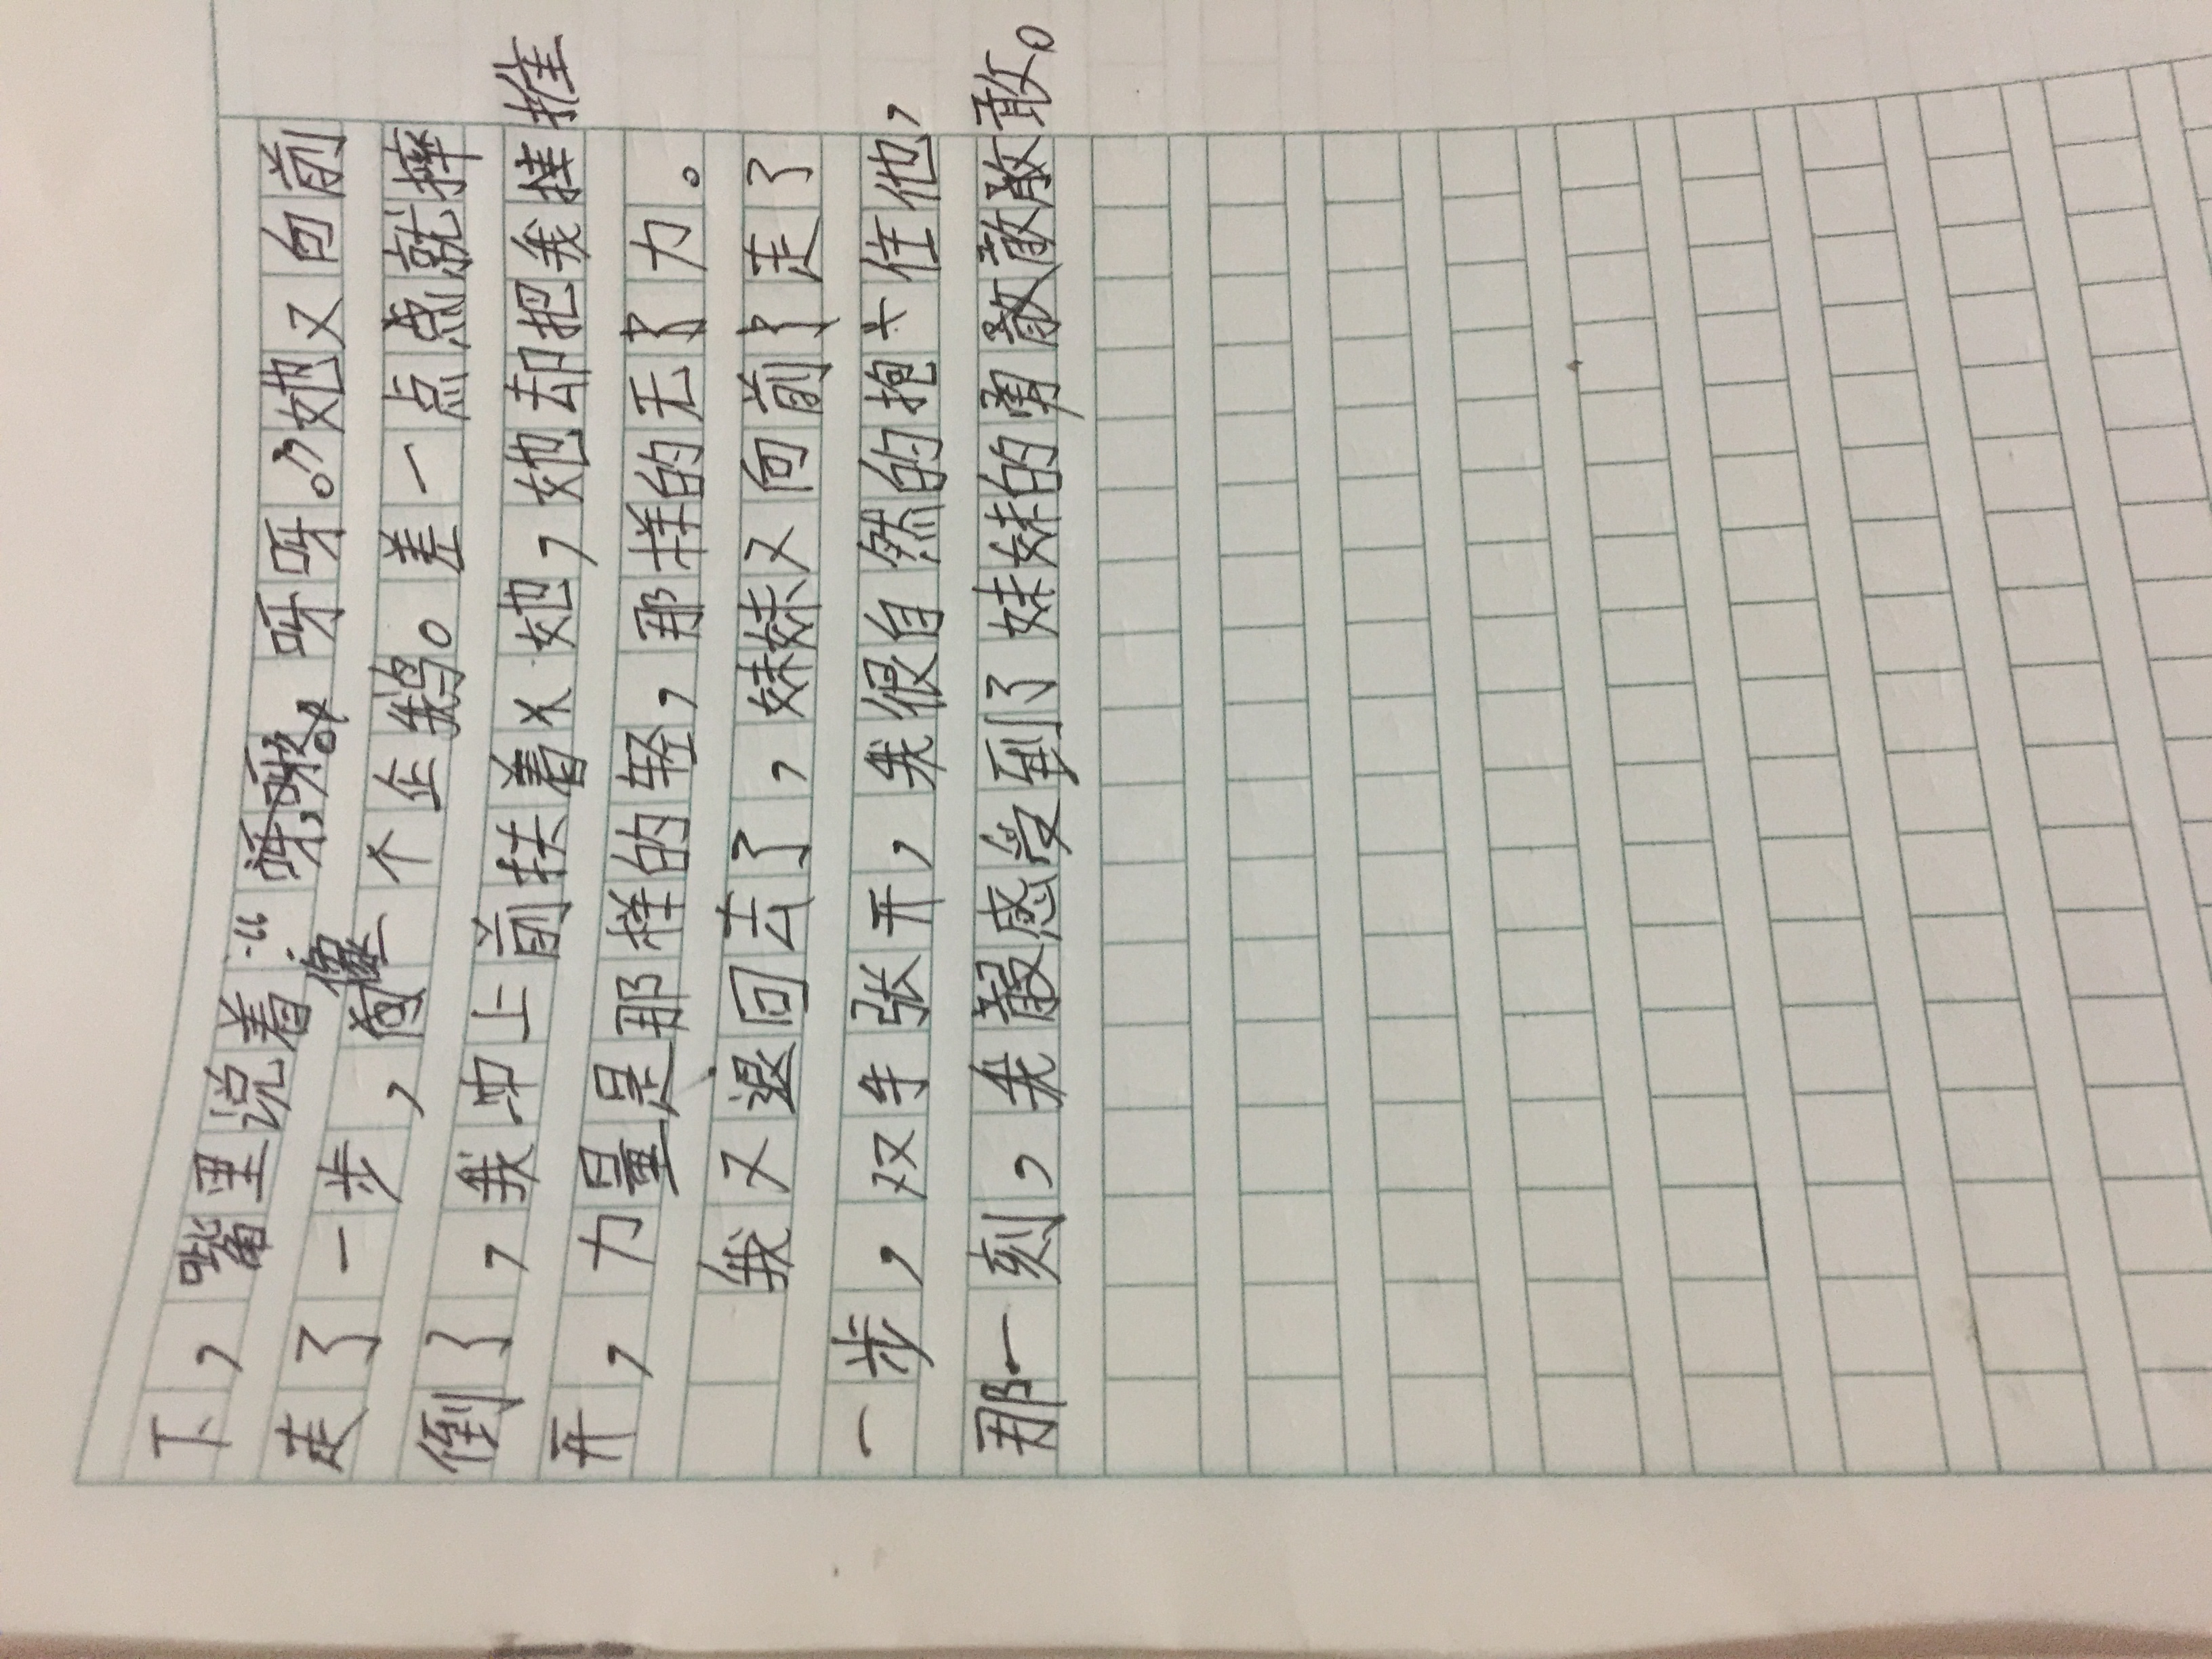 下，嘴里说着：“呀，呀呀。”她又向前
走了一步，像一个企鹅。差一点点就摔
倒了，我冲上前扶着她，她却把我推
开，力量是那样的轻，那样的无了力。
我又退回去了，妹妹又向前了走了
一步，双手张开，我很自然的抱住他，
那一刻，我感受到了妹妹的勇敢。